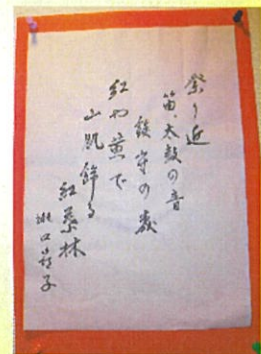 祭り近
笛、太鼓の音
鎮守の森
紅や黄で
山肌飾る
紅葉林
口子